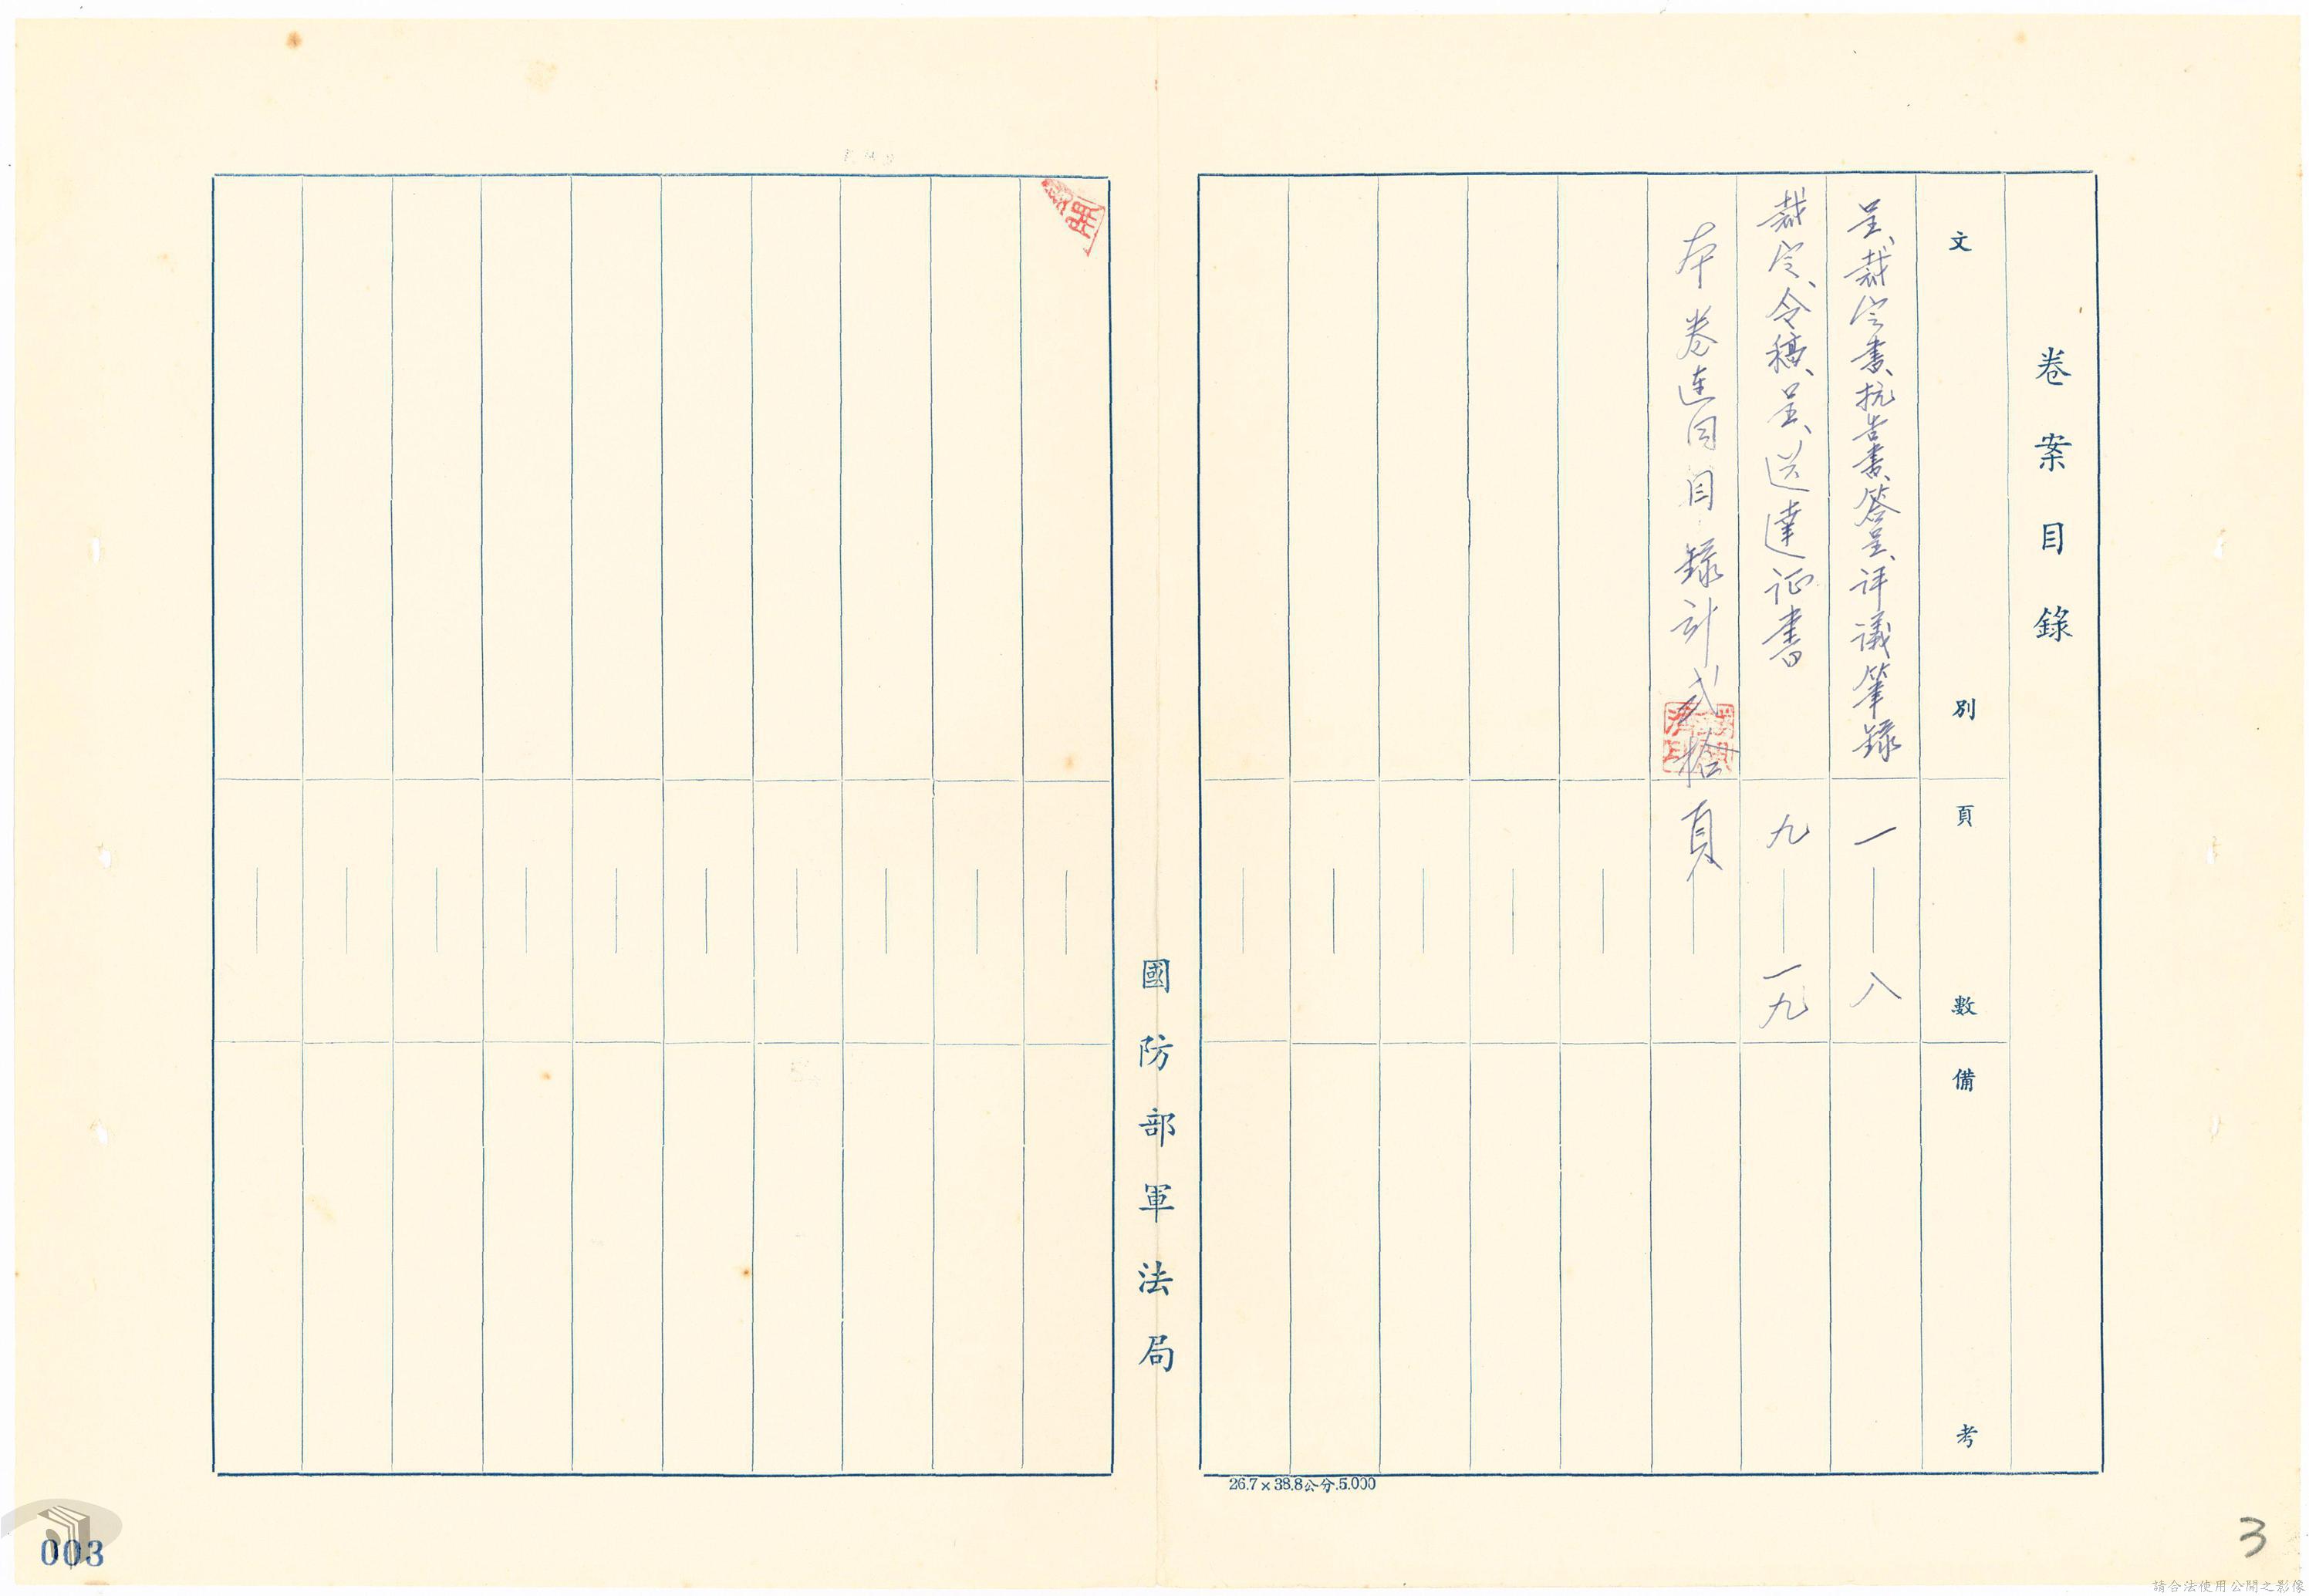 卷案目錄
文別
頁數
備考
呈、裁定書、抗告書、簽呈、评議筆録
一—八
裁定、令稿、呈、送達证書
九—一九
本卷連同目録計弍拾頁
國防部軍法局
26.7×38.8公分.5.000
003
3
請合法使用公開之影像